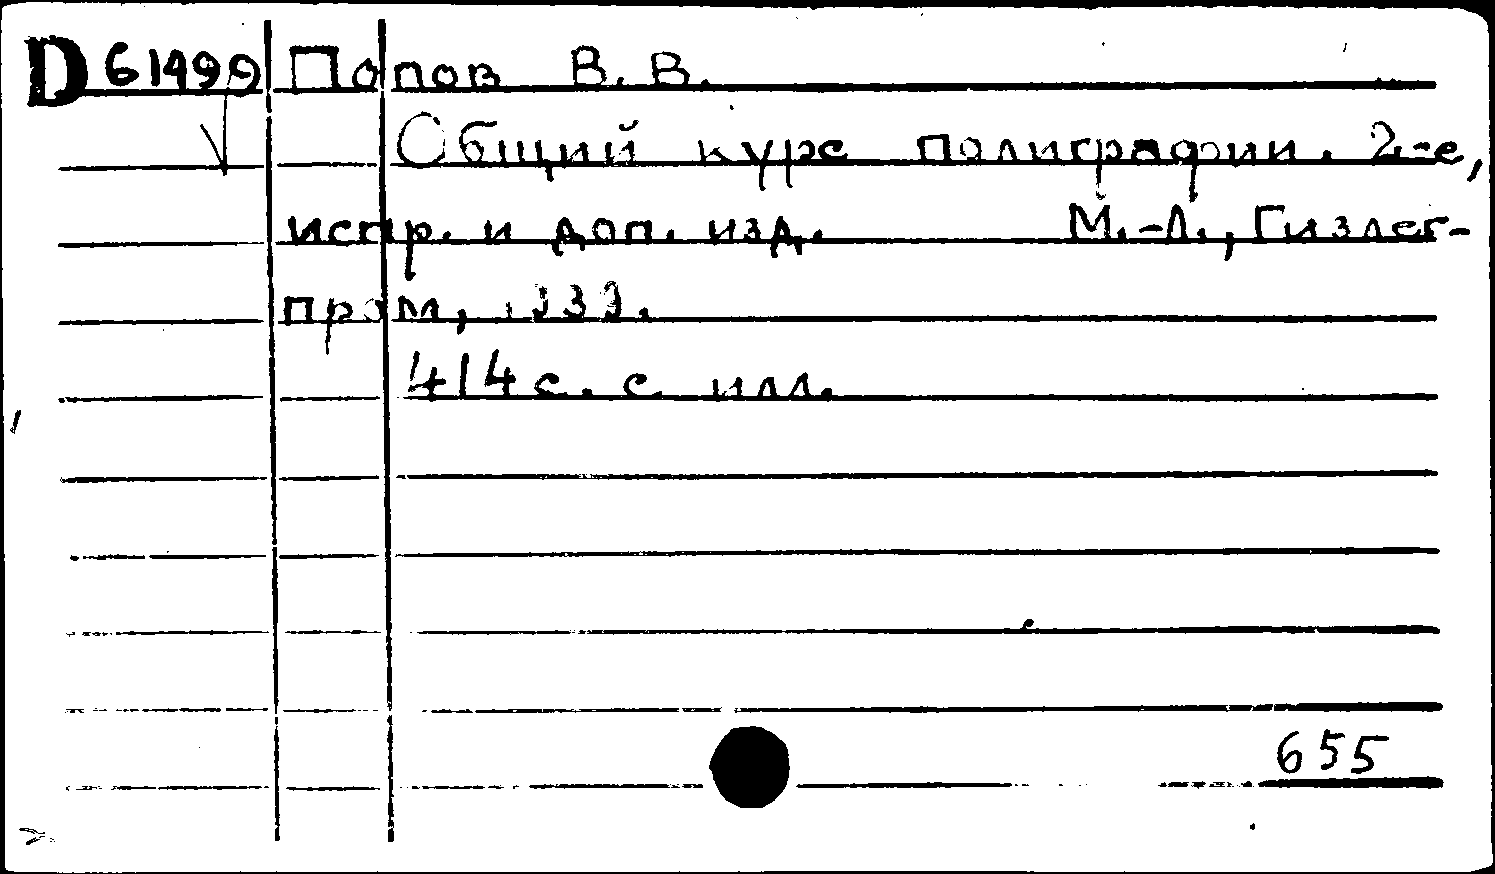 D 61499 Попов В. В.
Общий курс полиграфии. 2-е,
испр. и доп. изд. М.-Л., Гизлег-
пром, 1939.
414 с. с илл.
655